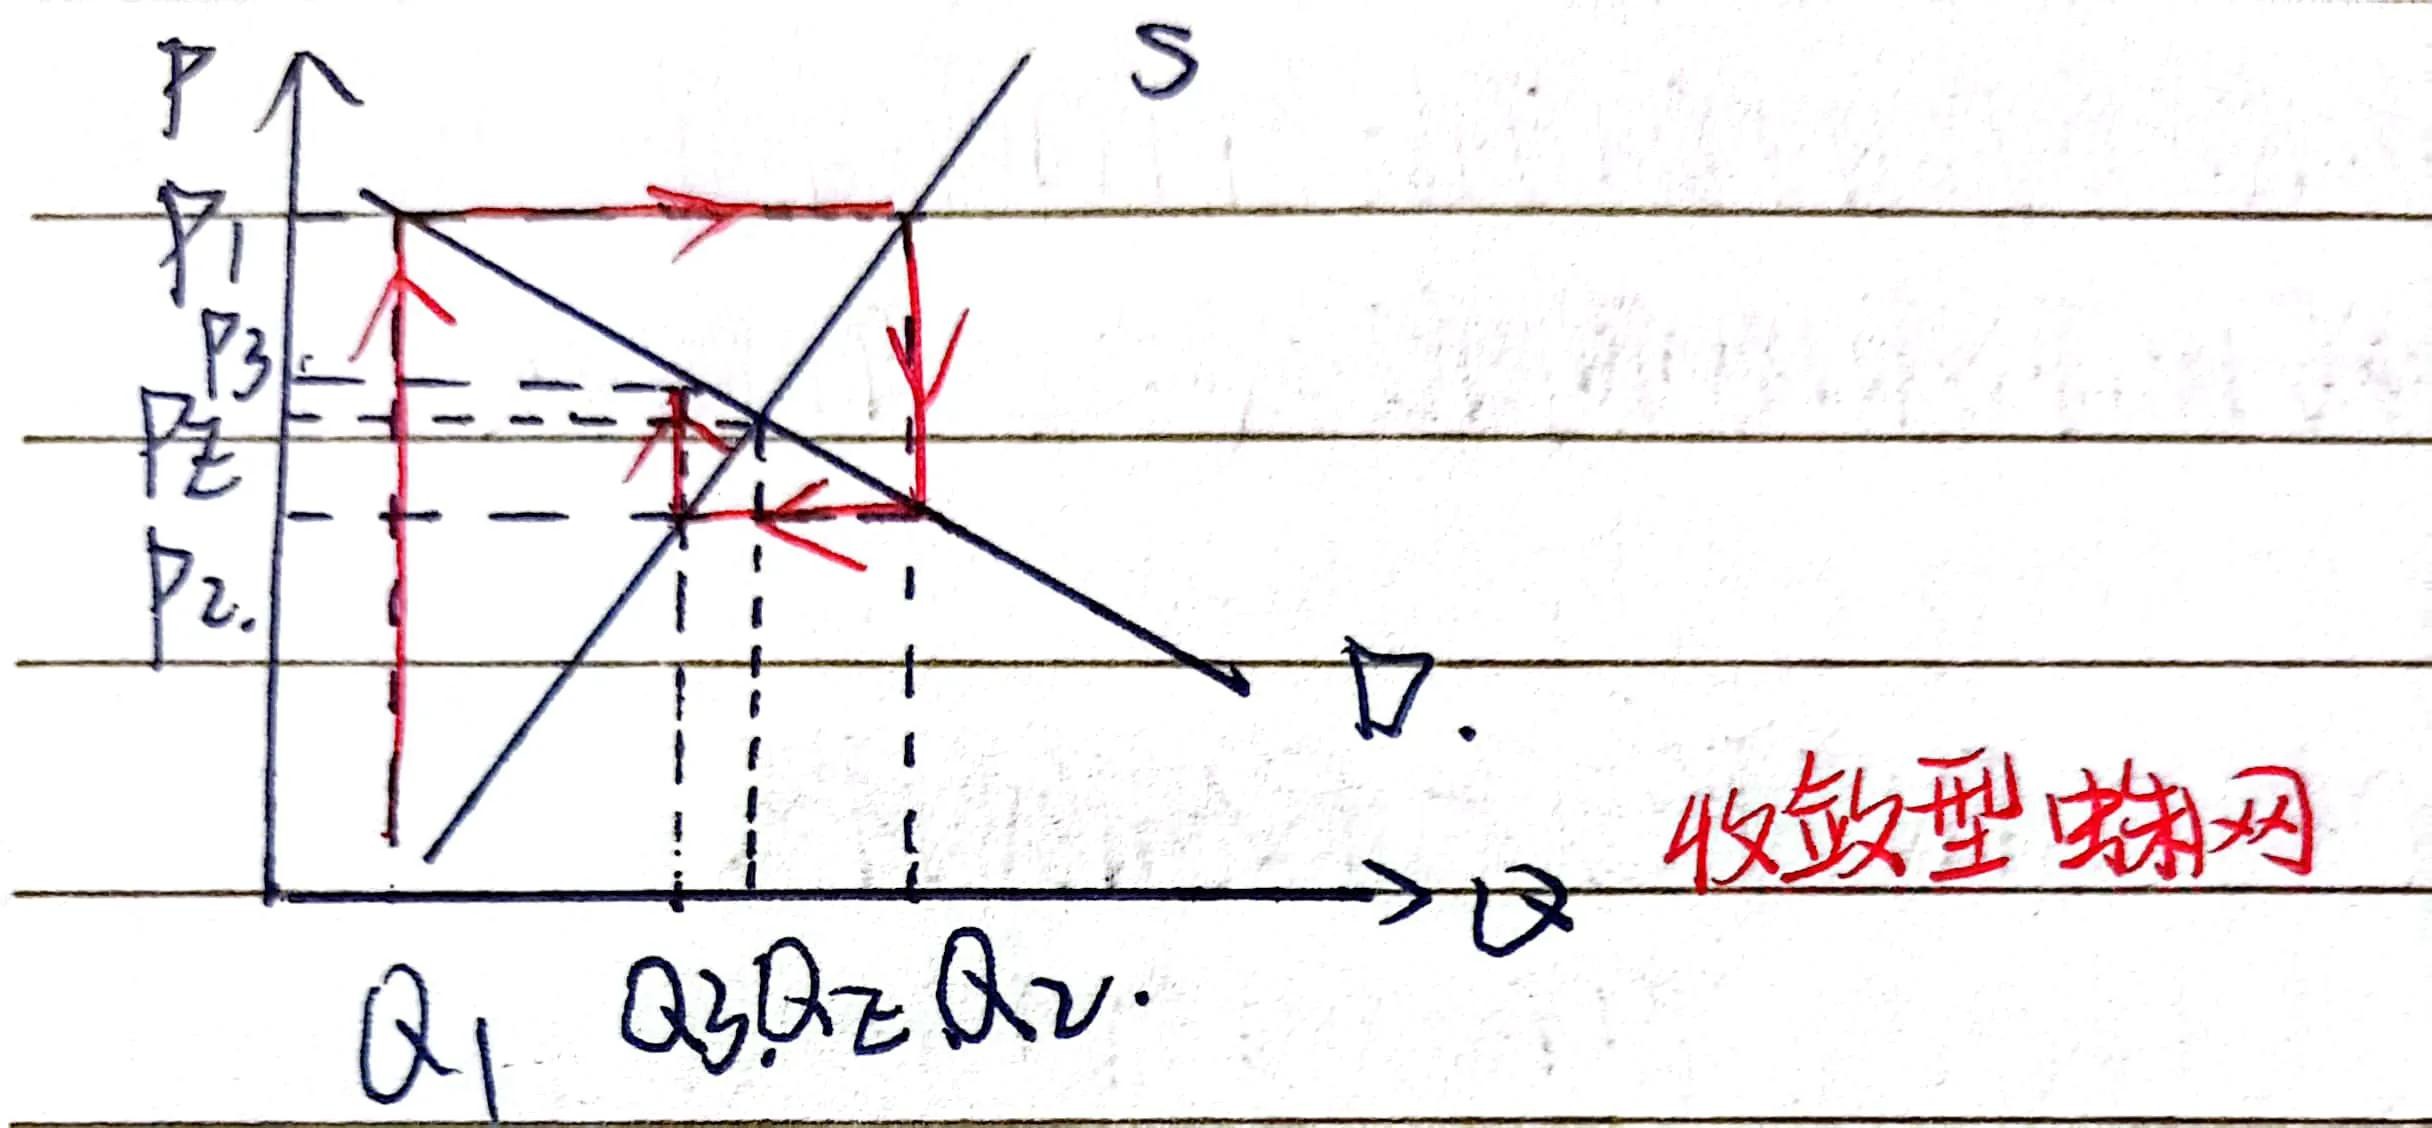 P
S
P1
P3
PZ
P2.
D.
收敛型蛛网
Q
Q1 Q3. QZ Q2.